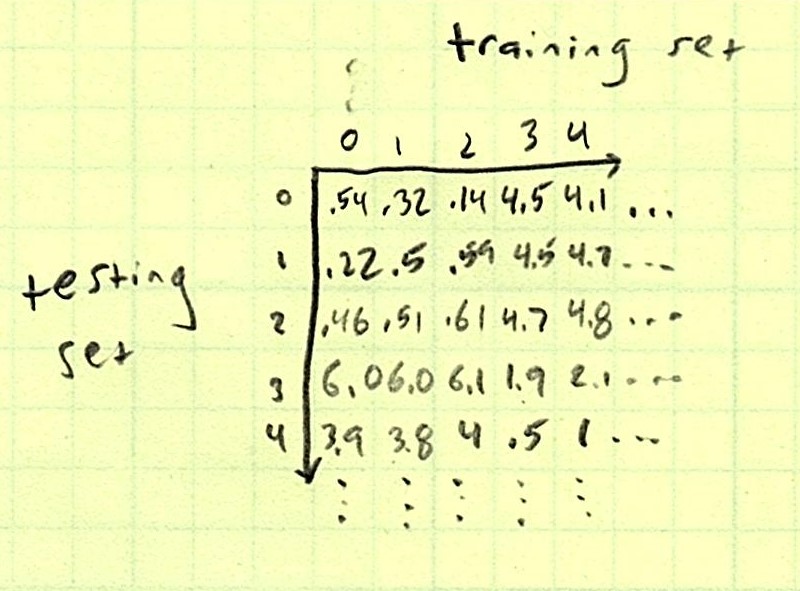 training set
0 1 2 3 4
0 .54 .32 .14 4.5 4.1 ...
1 .22 .5 .59 4.5 4.7 ...
testing
2 .46 .51 .61 4.7 4.8 ...
set
3 6.0 6.0 6.1 1.9 2.1 ...
4 3.9 3.8 4 .5 1 ...